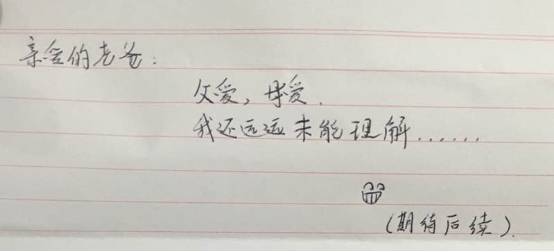 亲爱的老爸：
父爱，母爱.
我还远远未能理解......
(期待后续).